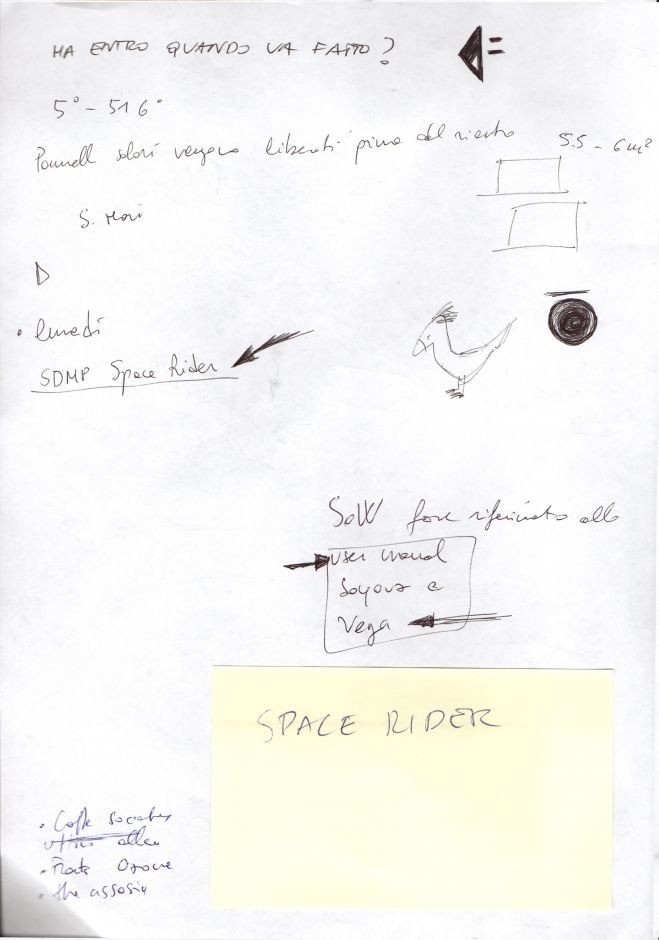 MA ENTRO QUANDO VA FATTO?
5° - 516°
Pannelli solari vengono liberati prima del rientro
5.5 - 6 m²
S. Mari
• lunedì
SDMP Space Rider
SoW fare riferimento allo
user manual
Soyouz e
Vega
SPACE RIDER